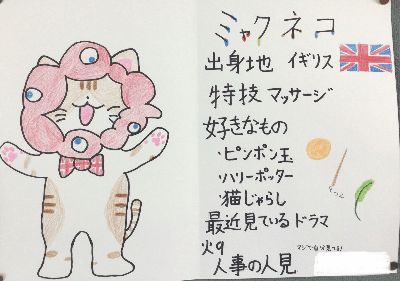 ミャクネコ
出身地 イギリス
特技 マッサージ
好きなもの
・ピンポン玉
・ハリーポッター
・猫じゃらし
最近見ているドラマ
火9
人事の人見